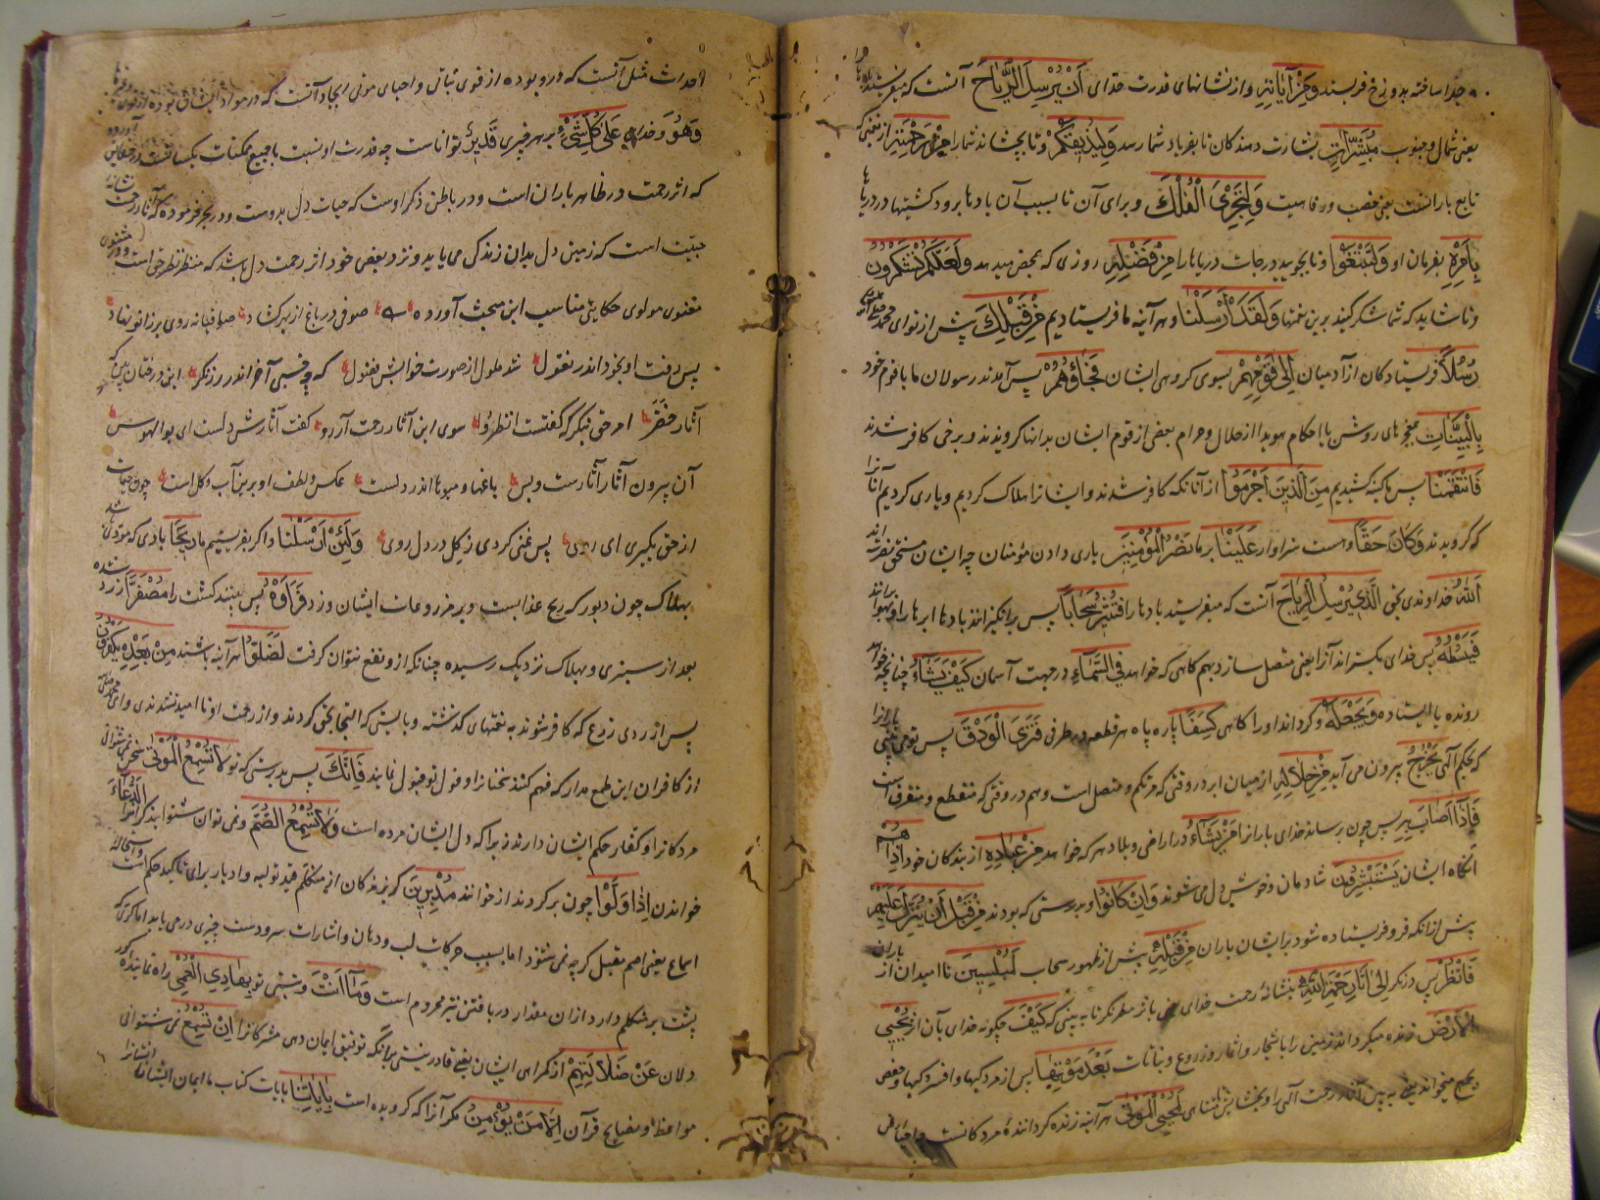 جدا ساخته بدوزخ فرستند وَمِنْ آيَاتِهِ و از نشانهای قدرت خدای أَنْ يُرْسِلَ الرِّيَاحَ آنست که میفرستد بادها را
یعنی شمال و جنوب مُبَشِّرَاتٍ بشارت دهندکان تا بفریاد شما رسد وَلِيُذِيقَكُمْ و تا بچشاند شما را مِنْ رَحْمَتِهِ از نعمتی که
تابع بارانست یعنی خصب و رفاهیت وَلِتَجْرِيَ الْفُلْكُ و برای آن تا بسبب آن بادها برود کشتیها در دریا
بِأَمْرِهِ بفرمان او وَلِتَبْتَغُوا و تا بجویید درجات دریا بار مِنْ فَضْلِهِ روزی که بمحض میدهد وَلَعَلَّكُمْ تَشْكُرُونَ
و تا شاید که شما شکر کنید برین نعمتها وَلَقَدْ أَرْسَلْنَا و هر آینه ما فرستادیم مِنْ قَبْلِكَ پیش از تو ای محمد
رُسُلًا فرستادکان از آدمیان إِلَىٰ قَوْمِهِمْ بسوی کروهی ایشان فَجَاءُوهُمْ پس آمدند رسولان ما با قوم خود
بِالْبَيِّنَاتِ بمعجزهای روشن یا با احکام هویدا از حلال و حرام بعضی از قوم ایشان بدانها کرویدند و برخی کافر شدند
فَانْتَقَمْنَا پس ما کینه کشیدیم مِنَ الَّذِينَ أَجْرَمُوا از آنانکه کافر شدند و ایشانرا هلاک کردیم و یاری کردیم آنانرا
که کرویدند وَكَانَ حَقًّا و هست سزاوار عَلَيْنَا بر ما نَصْرُ الْمُؤْمِنِينَ یاری دادن مؤمنان چه ایشان مستحق نصرت اند
اللَّهُ خداوندی بحق الَّذِي يُرْسِلُ الرِّيَاحَ آنست که میفرستد بادها را فَتُثِيرُ سَحَابًا پس برانکیزانند بادها ابرها را
فَيَبْسُطُهُ پس خدای بکستراند آنرا یعنی متصل سازد بهم کاهی که خواهد فِي السَّمَاءِ در جهت آسمان كَيْفَ يَشَاءُ چنانچه خواهد
رونده یا ایستاده وَيَجْعَلُهُ و کرداند او را کاهی كِسَفًا پاره پاره هر قطعه در طرفی فَتَرَى الْوَدْقَ پس تو می بینی بارانرا
که بحکم الهی يَخْرُجُ بیرون می آید مِنْ خِلَالِهِ از میان ابر در وقتی که مرتکم و متصل است و هم در وقتی که منقطع و متفرق است
فَإِذَا أَصَابَ بِهِ پس چون برساند خدای بارانرا مَنْ يَشَاءُ در اراضی و بلاد هر که خواهد مِنْ عِبَادِهِ از بندکان خود إِذَا هُمْ
آنکاه ایشان يَسْتَبْشِرُونَ شادمان و خوش دل می شوند وَإِنْ كَانُوا و بدرستی که بودند مِنْ قَبْلِ أَنْ يُنَزَّلَ عَلَيْهِمْ
پیش از آنکه فرو فرستاده شود بر ایشان باران مِنْ قَبْلِهِ پیش از ظهور سحاب لَمُبْلِسِينَ نا امیدان از باران
فَانْظُرْ پس در نکر إِلَىٰ آثَارِ رَحْمَةِ اللَّهِ بنشانهٔ رحمت خدای یعنی باثر مطر نکر تا به بینی که كَيْفَ چکونه خدای بآن اثر يُحْيِي
الْأَرْضَ زنده میکرداند زمین را باشجار و اثمار و زروع و نباتات بَعْدَ مَوْتِهَا پس از مردکیها و افسردکیها و بعضی
لَمُحْيِي الْمَوْتَىٰ هر آینه زنده کردانندهٔ مردکانست
احداث مثل آنست که درو بوده از قوی نباتی و احیای موتی ایجاد آنست که در مواد ایشان بوده از قوی
وَهُوَ و خدای عَلَىٰ كُلِّ شَيْءٍ بر هر چیزی قَدِيرٌ تواناست چه قدرت او نسبت با جمیع ممکنات یکسانست
که اثر رحمت در ظاهر بارانست و در باطن ذکر اوست که حیات دل بدوست و در بحر فرموده که آثار رحمت
است که زمین دل بدان زندکی می یابد و نزد بعضی خود اثر رحمت دل باشد که منظر نظر حق است
معنوی مولوی حکایتی مناسب این مبحث آورده صوفی در باغ از بهر کشاد صوفیانه روی بر زانو نهاد
پس فرو رفت او بخود اندر نغول شد ملول از صورت خوابش فضول که چه خسبی آخر اندر رز نکر این درختان بین که
آثار خضر امر حق بشنو که کفتست انظروا سوی این آثار رحمت آر رو کفت آثارش دلست ای بو الهوس
آن برون آثار آثارست و بس باغها و میوها اندر دلست عکس لطف او برین آب و کل است
از حق بکیری ای روی پس غنی کردی ز کل در دل روی وَلَئِنْ أَرْسَلْنَا و اکر بفرستیم ما رِيحًا بادی که مؤدی شد
بهلاک چون دبور که ریح عذابست و بر مزروعات ایشان وزد فَرَأَوْهُ پس ببینند کشت را مُصْفَرًّا زرد شده
بعد از سبزی و بهلاک نزدیک رسیده چنانکه ازو نفع نتوان کرفت لَظَلُّوا هر آینه باشند مِنْ بَعْدِهِ يَكْفُرُونَ
پس از زردی زرع که کافر شوند به نعمتهای کذشته و بایستی که التجا بحق کردند و از رحمت او نا امید نشدندی و ای محمد
از کافران این طمع مدار که فهم کنند سخنانرا و قول تو قبول نمایند فَإِنَّكَ پس بدرستی که تو لَا تُسْمِعُ الْمَوْتَىٰ سخن نمی شنوانی
مردکانرا و کفار حکم ایشان دارند زیرا که دل ایشان مرده است وَلَا تُسْمِعُ الصُّمَّ و نمی توان شنوانید کرانرا الدُّعَاءَ
خواندن إِذَا وَلَّوْا چون برکردند از خواننده مُدْبِرِينَ کریزندکان از متکلم قید تولیه و ادبار برای تاکید حکم است
اسماع یعنی اصم مقبل کرچه نمی شنود اما بسبب حرکات لب و دهان و اشارات سر و دست چیزی در می یابد اما کری که
پشت بر متکلم دارد از آن مقدار دریافتن نیز محروم است وَمَا أَنْتَ و نیستی تو بِهَادِي الْعُمْيِ راه نمایندهٔ کور
دلان عَنْ ضَلَالَتِهِمْ از کمراهی ایشان یعنی قادر نیستی برانکه توفیق ایمان دهی مشرکانرا إِنْ تُسْمِعُ نمی شنوانی
مواعظ و نصایح قرآن إِلَّا مَنْ يُؤْمِنُ مکر آنرا که کرویده است بِآيَاتِنَا بآیات کتاب ما